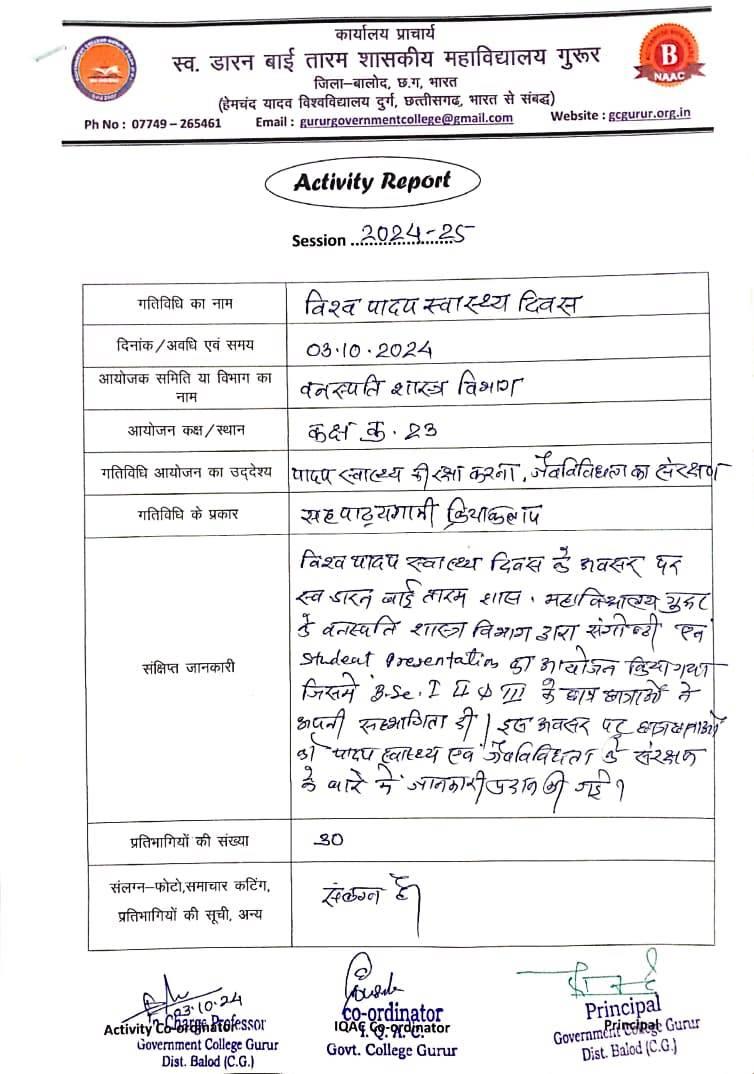 कार्यालय प्राचार्य
स्व. डारन बाई तारम शासकीय महाविद्यालय गुरूर
जिला–बालोद, छ.ग, भारत
(हेमचंद यादव विश्वविद्यालय दुर्ग, छत्तीसगढ, भारत से संबद्ध)
Ph No : 07749 – 265461 Email : gururgovernmentcollege@gmail.com Website : gcgurur.org.in
B
NAAC
Activity Report
Session ..2024-25
गतिविधि का नाम विश्व पादप स्वास्थ्य दिवस
दिनांक/अवधि एवं समय 03.10.2024
आयोजक समिति या विभाग का नाम वनस्पति शास्त्र विभाग
आयोजन कक्ष/स्थान कक्ष क्र. 23
गतिविधि आयोजन का उद्देश्य पादप स्वास्थ्य की रक्षा करना, जैवविविधता का संरक्षण
गतिविधि के प्रकार सहपाठ्यगामी क्रियाकलाप
संक्षिप्त जानकारी
विश्व पादप स्वास्थ्य दिवस के अवसर पर
स्व डारन बाई तारम शास. महाविद्यालय गुरूर
के वनस्पति शास्त्र विभाग द्वारा संगोष्ठी एवं
Student Presentation का आयोजन किया गया
जिसमें B.Sc. I II & III के छात्र छात्राओं ने
अपनी सहभागिता दी। इस अवसर पर छात्र छात्राओं
को पादप स्वास्थ्य एवं जैवविविधता के संरक्षण
के बारे में जानकारी प्रदान की गई।
प्रतिभागियों की संख्या 30
संलग्न–फोटो,समाचार कटिंग,
प्रतिभागियों की सूची, अन्य
संलग्न है।
03.10.24
Activity Co-ordinator
Professor
Government College Gurur
Dist. Balod (C.G.)
Co-ordinator
IQAC Co-ordinator
I.Q.A.C.
Govt. College Gurur
Principal
Principal
Government College Gurur
Dist. Balod (C.G.)